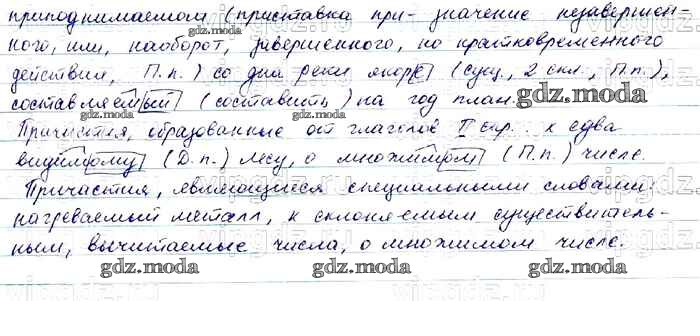 приподнимаемом (приставка при- значение незавершен-
ного, или, наоборот, завершенного, но кратковременного
действия, П.п.) со дна реки якоре (сущ., 2 скл., П.п.),
составляемый (составить) на год план.
gdz.moda gdz.moda
Причастия, образованные от глаголов II спр.: к едва
видимому (Д.п.) лесу, о множимом (П.п.) числе.
Причастия, являющиеся специальными словами:
нагреваемый металл, к склоняемым существитель-
gdz.moda gdz.moda
ным, вычитаемые числа, о множимом числе.
gdz.moda gdz.moda gdz.moda